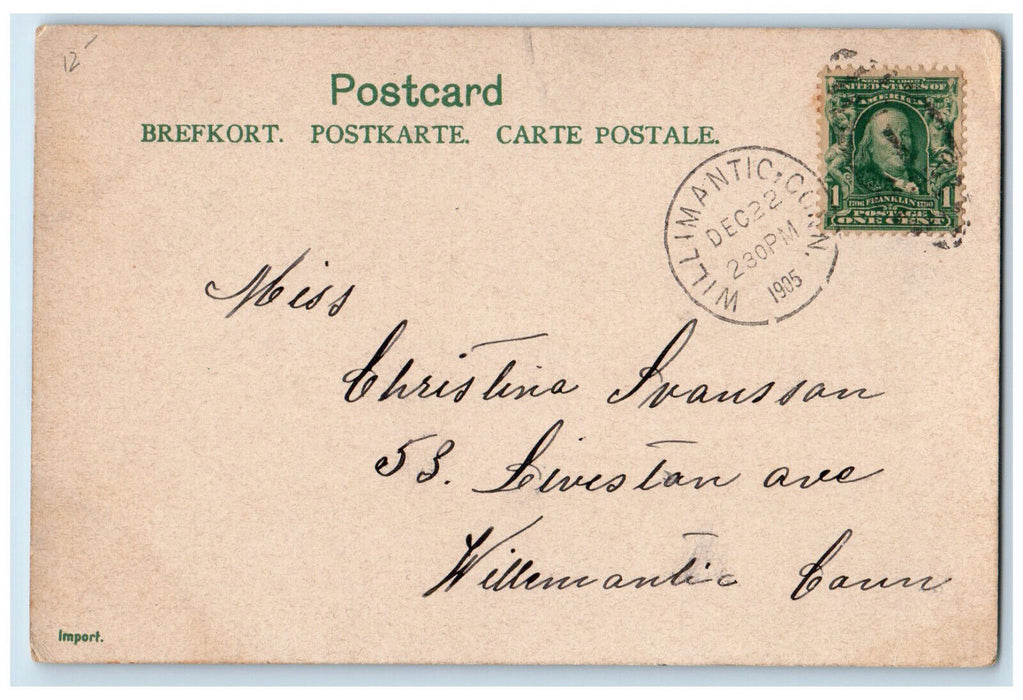 12-
Postcard
BREFKORT. POSTKARTE. CARTE POSTALE.
SERIES 1902
UNITED STATES OF
AMERICA
1 1706 FRANKLIN 1790 1
POSTAGE
ONE CENT
WILLIMANTIC, CONN.
DEC 22
230PM
1905
Miss
Christina Svansson
53. Liveston ave
Willemantic Conn
Import.